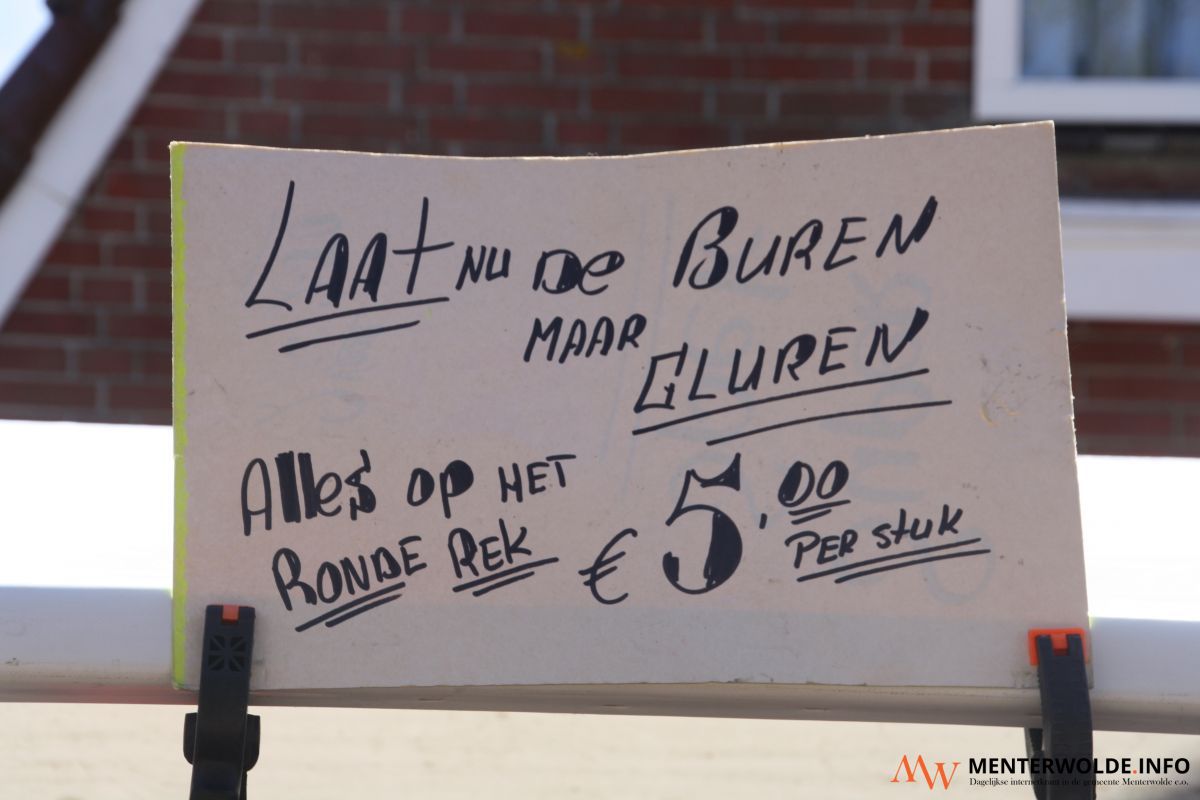 LAAt NU De BUREN
MAAR GLUREN
Alles op HET
RONDE REK € 5,00
PER stuk
MW MENTERWOLDE.INFO
Dagelijkse internetkrant in de gemeente Menterwolde e.o.